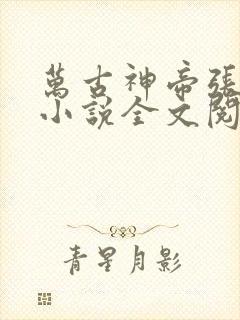 萬古神帝張
小說全文閱
青星月影